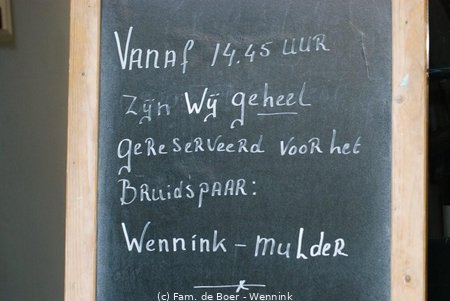 Vanaf 14.45 uur
zijn Wij geheel
gereserveerd voor het
Bruidspaar:
Wennink - mulder
(c) Fam. de Boer - Wennink